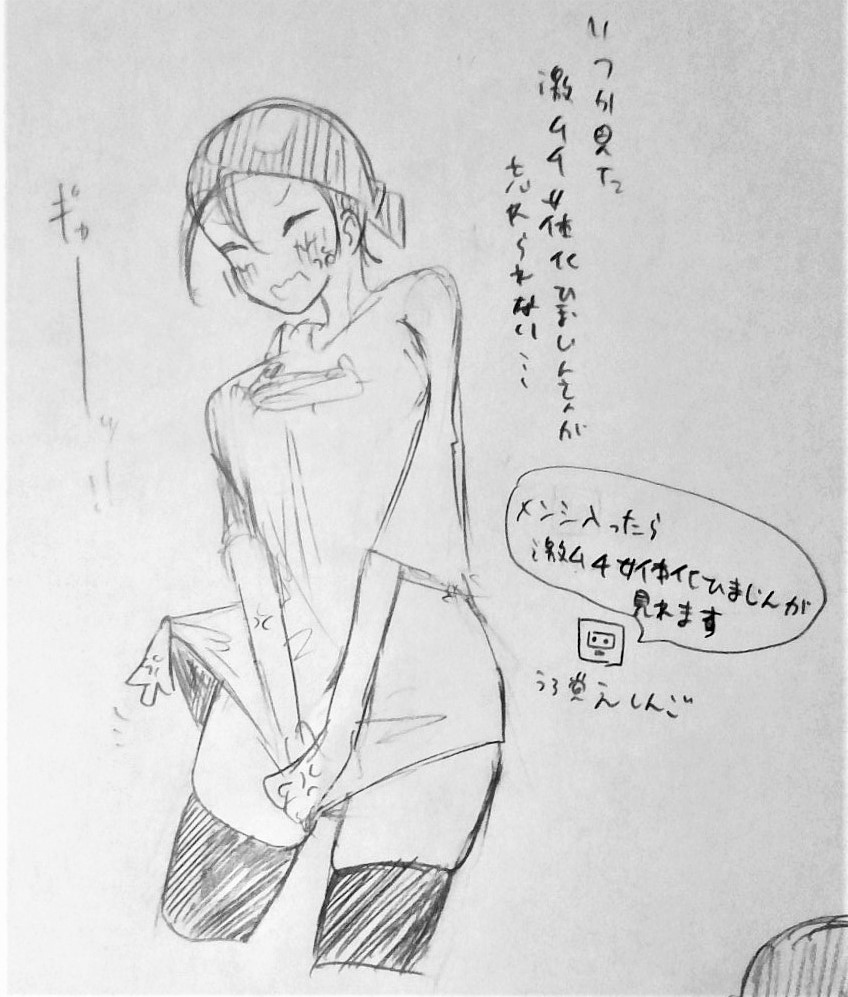 いつか見た
激ムチ女体化ひまじんさんが
忘れられない…
ギャーッ!!
メンシ入ったら
激ムチ女体化ひまじんが
見れます
うろ覚えしんご